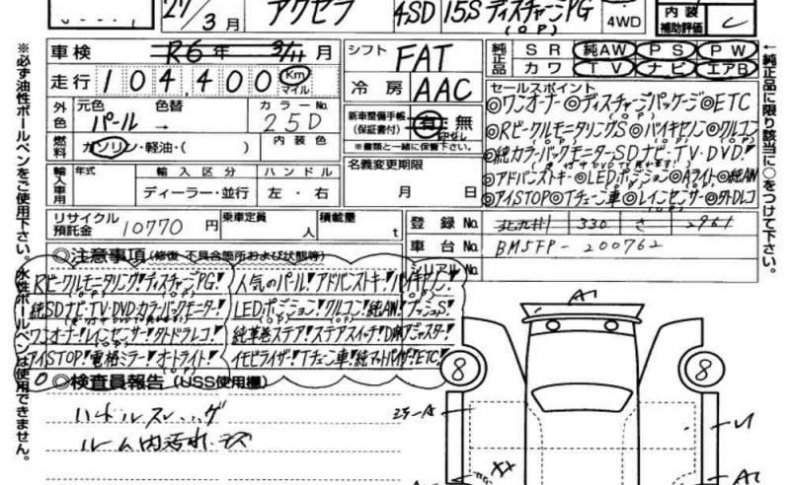 27/3月 アクセラ 4SD 15S ディスチャージPG (OP) 4WD 内装 補助評価 C
車検 R6年 3/11月 シフト FAT 純正品 SR 純AW PS PW
カワ TV ナビ エアB
走行 104,400 Km マイル 冷房 AAC
セールスポイント
◎ワンオーナー◎ディスチャージパッケージ◎ETC
◎Rビークルモニタリング◎バイキセノン◎クルコン
◎純カラーバックモニターSDナビ・TV・DVD!
◎アドバンストキー◎LEDポジション◎Aライト◎純AW
◎アイSTOP◎Tチェーン車◎レインセンサー◎外ドレコ
外色 元色 色替 カラーNo.
パール→ 25D
新車整備手帳 (保証書付) 有・無
※書類と一緒に保管下さい。
燃料 ガソリン・軽油・( ) 内装色
名義変更期限 月 日
輸入車用 年式 輸入区分 ハンドル
ディーラー・並行 左・右
リサイクル預託金 10770円 乗車定員 人 積載量 t
登録No. 330 さ 2961
車台No. BM5FP-200762
シリアルNo.
◎注意事項(修復・不具合箇所および状態等)
Rビークルモニタリング!ディスチャージPG! 人気のパール!アドバンストキー!バイキセノン!
純SDナビ・TV・DVD・カラーバックモニター! LEDポジション!クルコン!純AW!プッシュS!
ワンオーナー!レインセンサー!外ドラレコ! 純革巻ステア!ステアスイッチ!
アイSTOP!電格ミラー!オートライト! イモビライザー!Tチェーン車!純マットバイザー!ETC!
◎検査員報告(USS使用欄)
ハンドルスレ
ルーム内汚れ・
A1
8 8
XX
※必ず油性ボールペンをご使用下さい。水性ボールペンは使用できません。
←純正品に限り該当に○をつけて下さい。